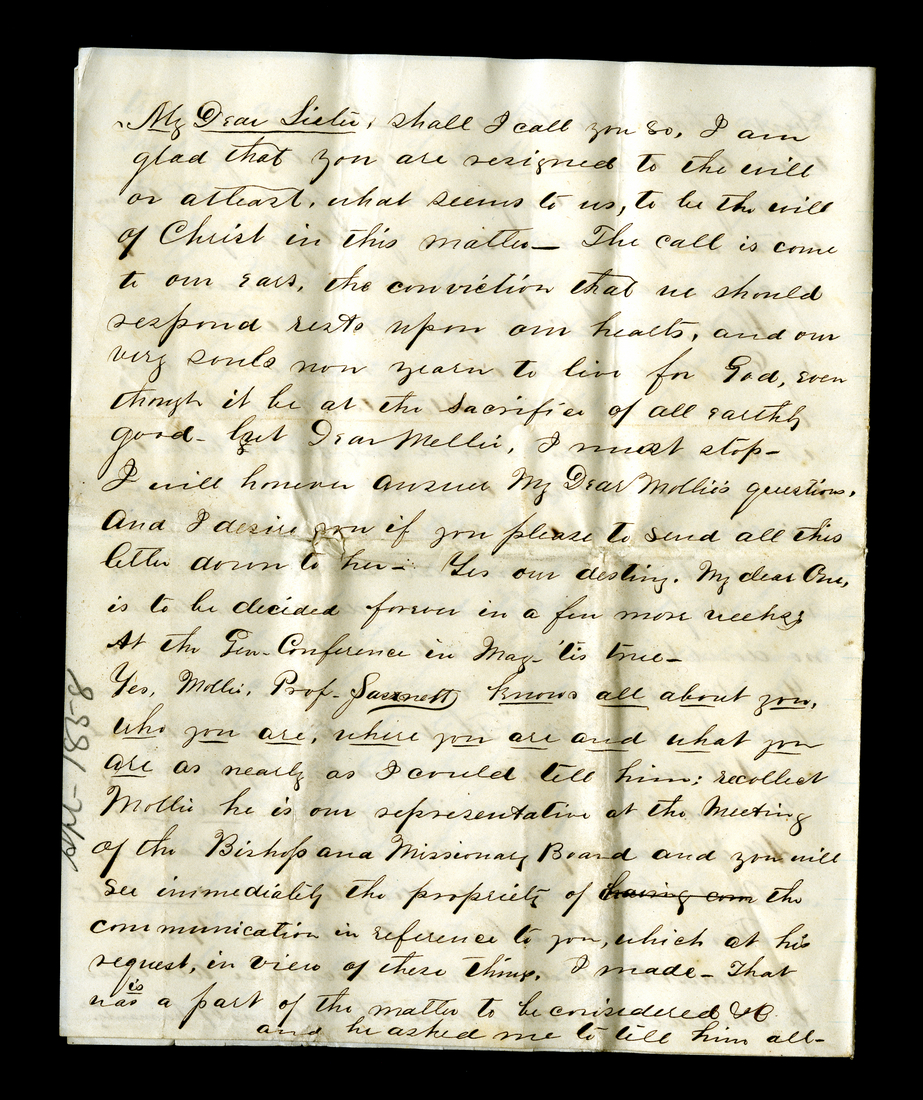 My Dear Sister, shall I call you so, I am
glad that you are resigned to the will
or atleast, what seems to us, to be the will
of Christ in this matter— The call is come
to our ears, the conviction that we should
respond rests upon our hearts, and our
very souls now yearn to live for God, even
though it be at the sacrifice of all earthly
good— but Dear Mellie, I must stop—
I will however answer My Dear Mollie's questions,
And I desire you if you please to send all this
letter down to her—. Yes our destiny. My dear One,
is to be decided forever in a few more weeks;
At the Gen-Conference in May- 'tis true—
Yes, Mollie, Prof- knows all about you,
who you are, where you are and what you
are as nearly as I could tell him; recollect
Mollie he is our representative at the Meeting
of the Bishops and Missionary Board and you will
see immediately the propriety of having com the
communication in reference to you, which at his
request, in view of these things, I made— That
is
was a part of the matter to be considered &C.
and he asked me to tell him all—
Apl- 1858